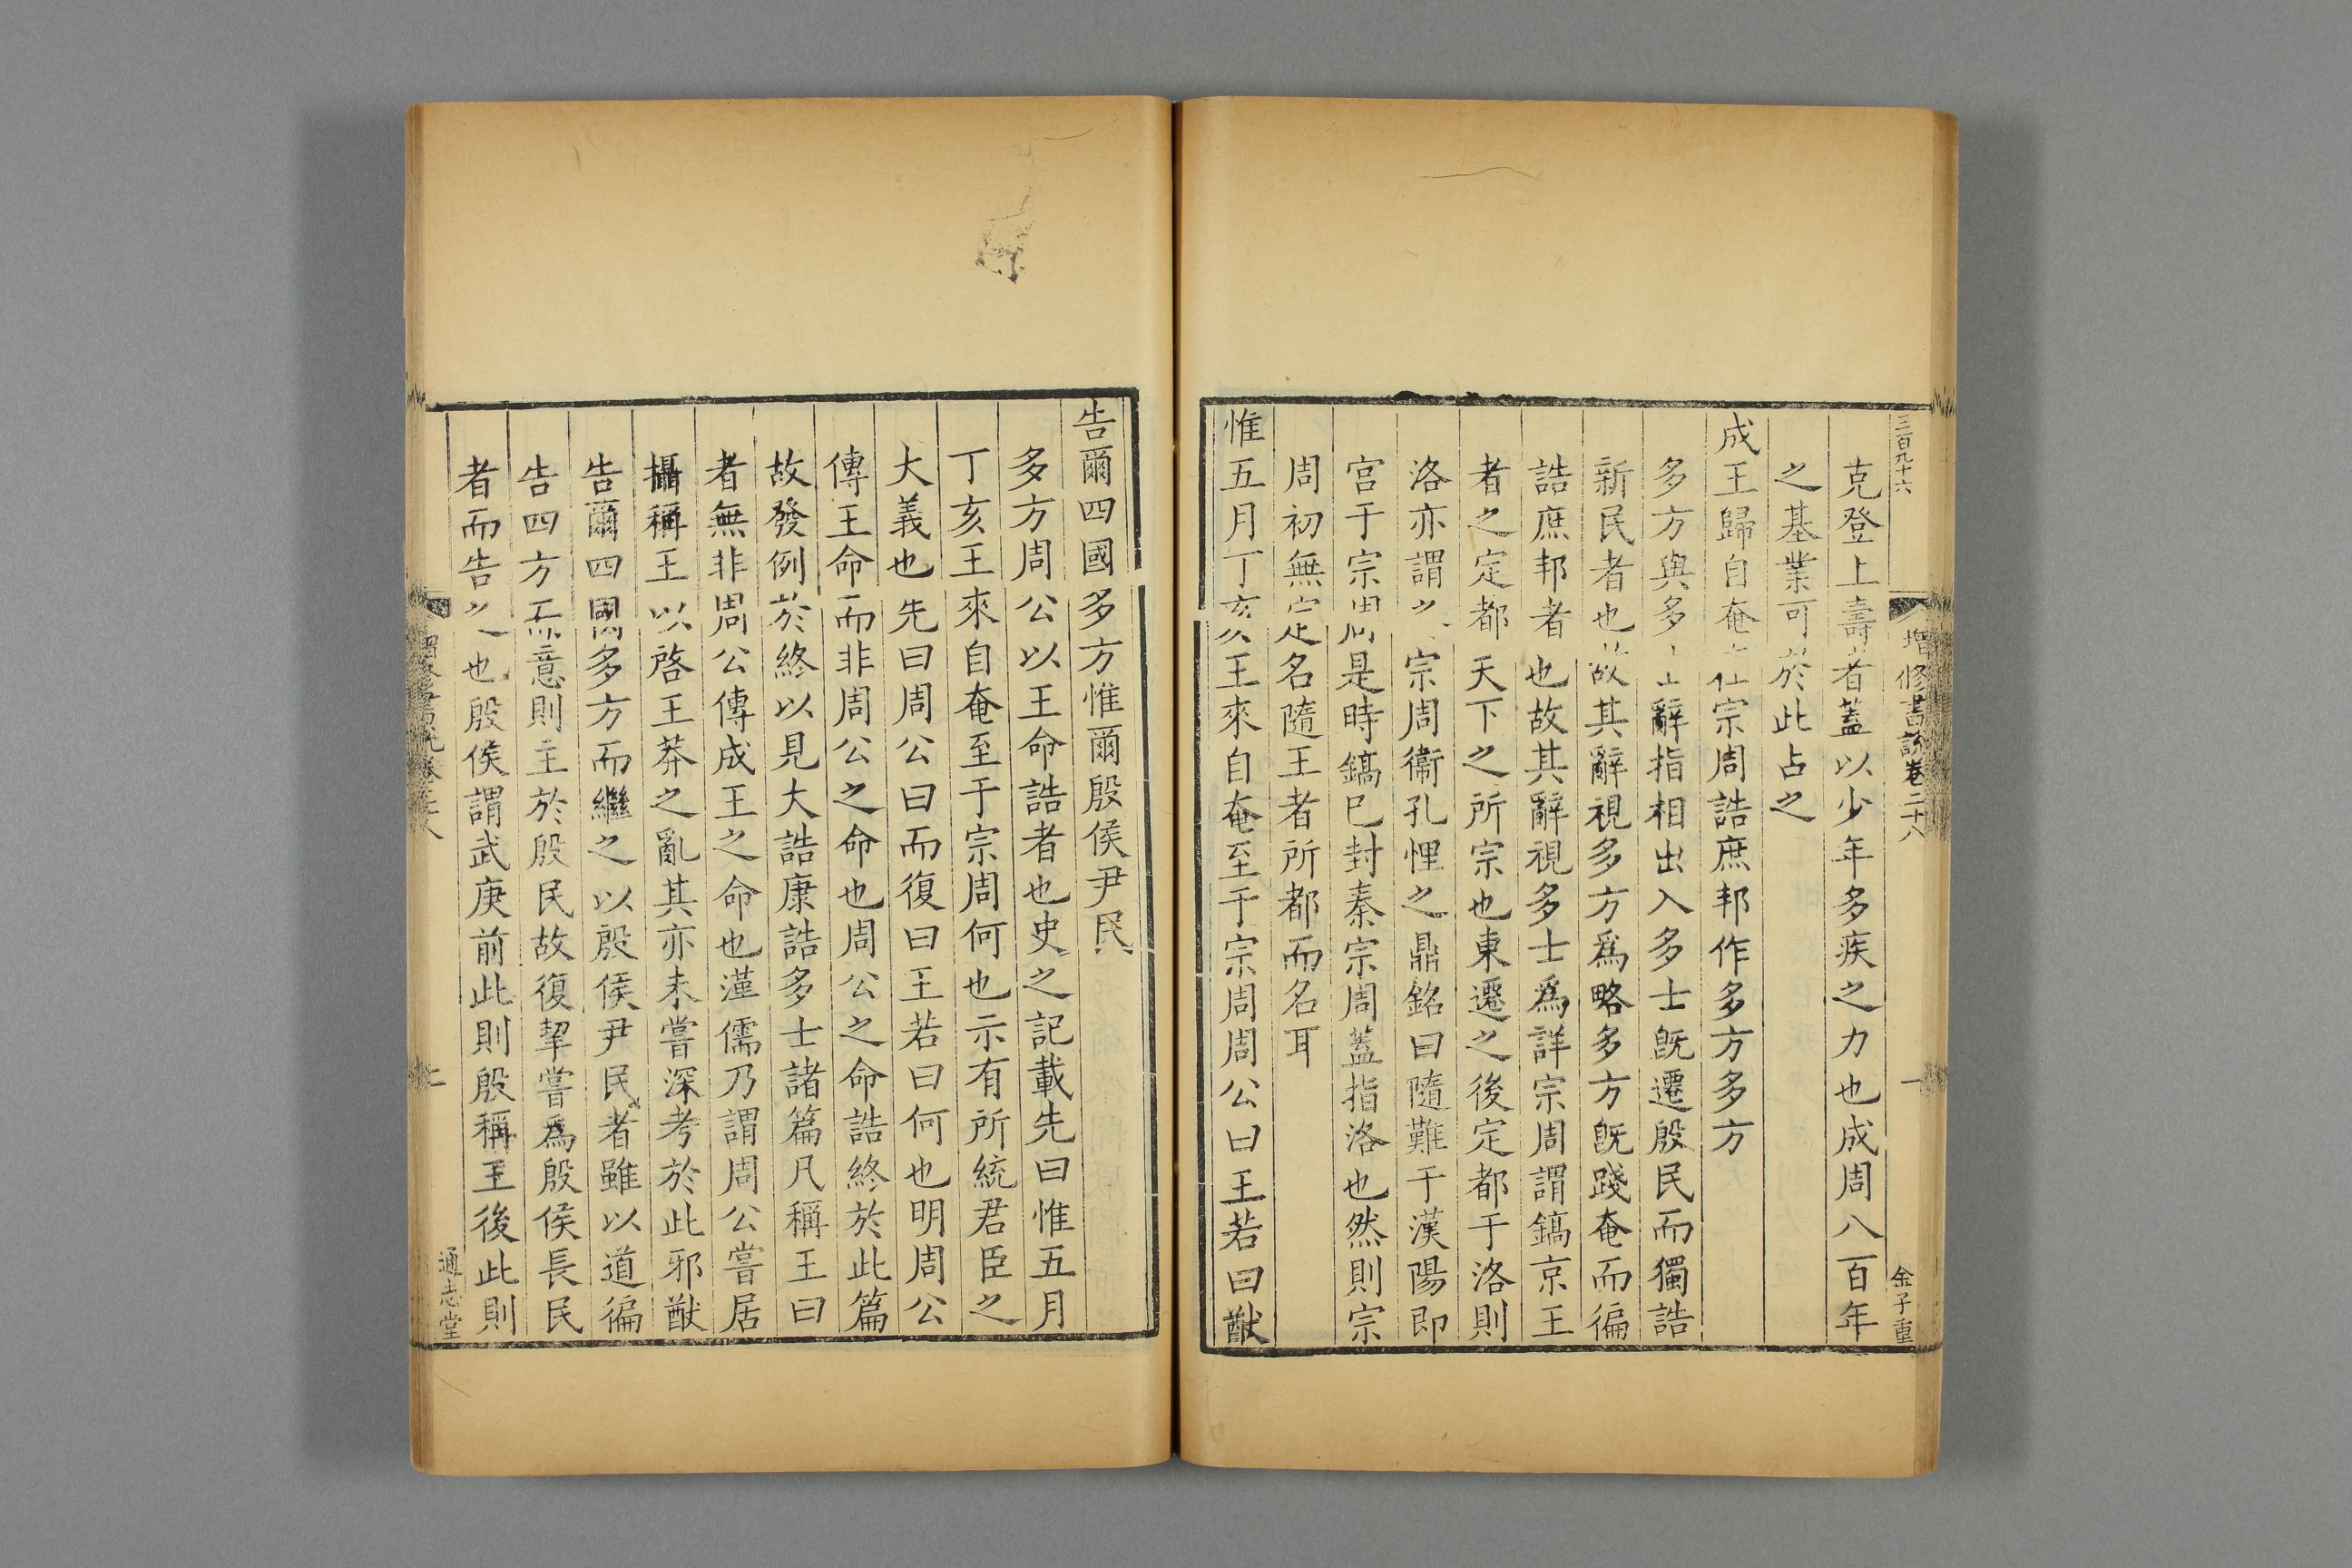 三百九十六
增修書說卷二十八
一
金子重
克登上壽者蓋以少年多疾之力也成周八百年
之基業可於此占之
成王歸自奄在宗周誥庶邦作多方多方
多方與多士辭指相出入多士旣遷殷民而獨誥
新民者也故其辭視多方爲略多方旣踐奄而徧
誥庶邦者也故其辭視多士爲詳宗周謂鎬京王
者之定都天下之所宗也東遷之後定都于洛則
洛亦謂之宗周衞孔悝之鼎銘曰隨難于漢陽即
宫于宗周是時鎬已封秦宗周蓋指洛也然則宗
周初無定名隨王者所都而名耳
惟五月丁亥王來自奄至于宗周周公曰王若曰猷
告爾四國多方惟爾殷侯尹民
多方周公以王命誥者也史之記載先曰惟五月
丁亥王來自奄至于宗周何也示有所統君臣之
大義也先曰周公曰而復曰王若曰何也明周公
傳王命而非周公之命也周公之命誥終於此篇
故發例於終以見大誥康誥多士諸篇凡稱王曰
者無非周公傳成王之命也漢儒乃謂周公嘗居
攝稱王以啓王莽之亂其亦未嘗深考於此邪猷
告爾四國多方而繼之以殷侯尹民者雖以道徧
告四方而意則主於殷民故復挈嘗爲殷侯長民
者而告之也殷侯謂武庚前此則殷稱王後此則
通志堂